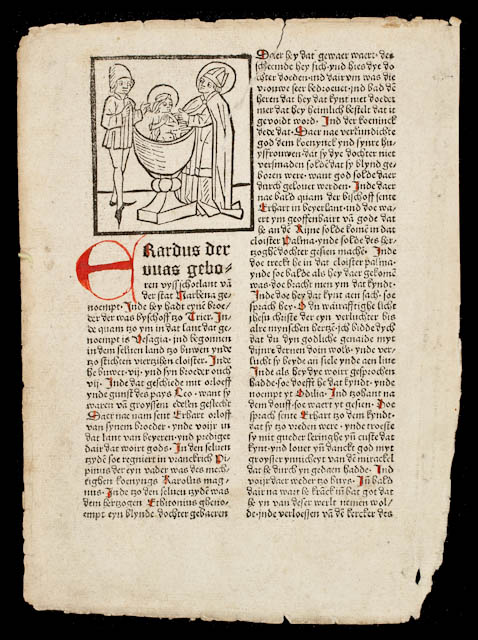 ERardus der
vuas gebo-
ren vyss schotlant vā
der stat Narbena ge-
noempt. Inde hey hadt eynē broe-
der der was byschoff tzo Trier. In-
de quam tzo ym in dat lant dat ge-
noempt is Vesagia. ind begonnen
in dem seluen land tzo buwen ynde
tzo stichten vierzihen cloister. Inde
he buwet. vij. ynd syn broeder ouch
vij. Inde dat geschiede mit orloeff
ynde gunst des pays Leo. want sy
waren vā groyssem edelem geslecht
Daer nae nam sent Erhart orloff
van synem broeder. ynde voijr in
dat lant van beyeren. ynd prediget
dair dat woirt gods. In der seluen
tzydē soe regniert in vranckrich Pi-
pinus der eyn vader was des mech-
tighen koenyngs Karolus mag-
nus. Inde tzo den seluen tzydē was
dem hertzogen Ethitonius ghens-
empt eyn blynde dochter gebaeren
Daer hey dat gewaer waert. des
scheemde hey sich. ynd hies dye do
chter doeden. ind dairvm was die
vrouwe seer bedroeuet. ind bad dē
heren dat hey dat kynt niet doedet
mer dat hey heimlich bestelt dat it
gevoidt word. Ind der koeninck
dede dat. Daer nae verkundichte
god dem koenynck ynd synre huy-
sfrouwen. dat sy dye dochter niet
versmaden soldē dat sy blynd ge-
boren were. want god solde daer
durch gelouet werden. Inde daer
nae bald quam der bischoff sente
Erhart in beyerlant. ind doe wa-
ert ym geoffenbairt vā gode dat
he an dē Rijne solde komē in dat
cloister Palma. ynde solde des her-
tzoghē dochter gesien machē. In-
doe treckt he in dat cloister palma.
ynde soe balde als hey daer gekomē
was. doe bracht men ym dat kynt.
Inde doe hey dat kynt aen sach. soe
sprach hey. O du wairafftighe licht
ihesu christe der eyn verluchter bis
alre mynschen hertzē. ich bidde dych
dat du dyn godliche genaide myt
dijnre dernen doin wols. ynde ver-
lucht sy beyde an siele ynde aen liue
Inde als hey dye woirt gesprochen
hadde. soe doefft he dat kyndt. ynde
noempt yt Odilia. Ind tzohant na
dem douff. soe waert yt gesien. Doe
sprach sente Erhart tzo dem kyndt.
dat sy tzo vreden were. ynde troeste
sy mit gueder leringhe yn custe dat
kynt. ynd louet yn danckt god myt
groysser ynnicheyt van dē mirackel
dat he durch yn gedaen hadde. Ind
voijr daer weder tzo huys. Jn bald
dair na wart he krāck in bat got dat
he yn van deser werlt nemen wol/
de. inde verloessen vā dē kercker des